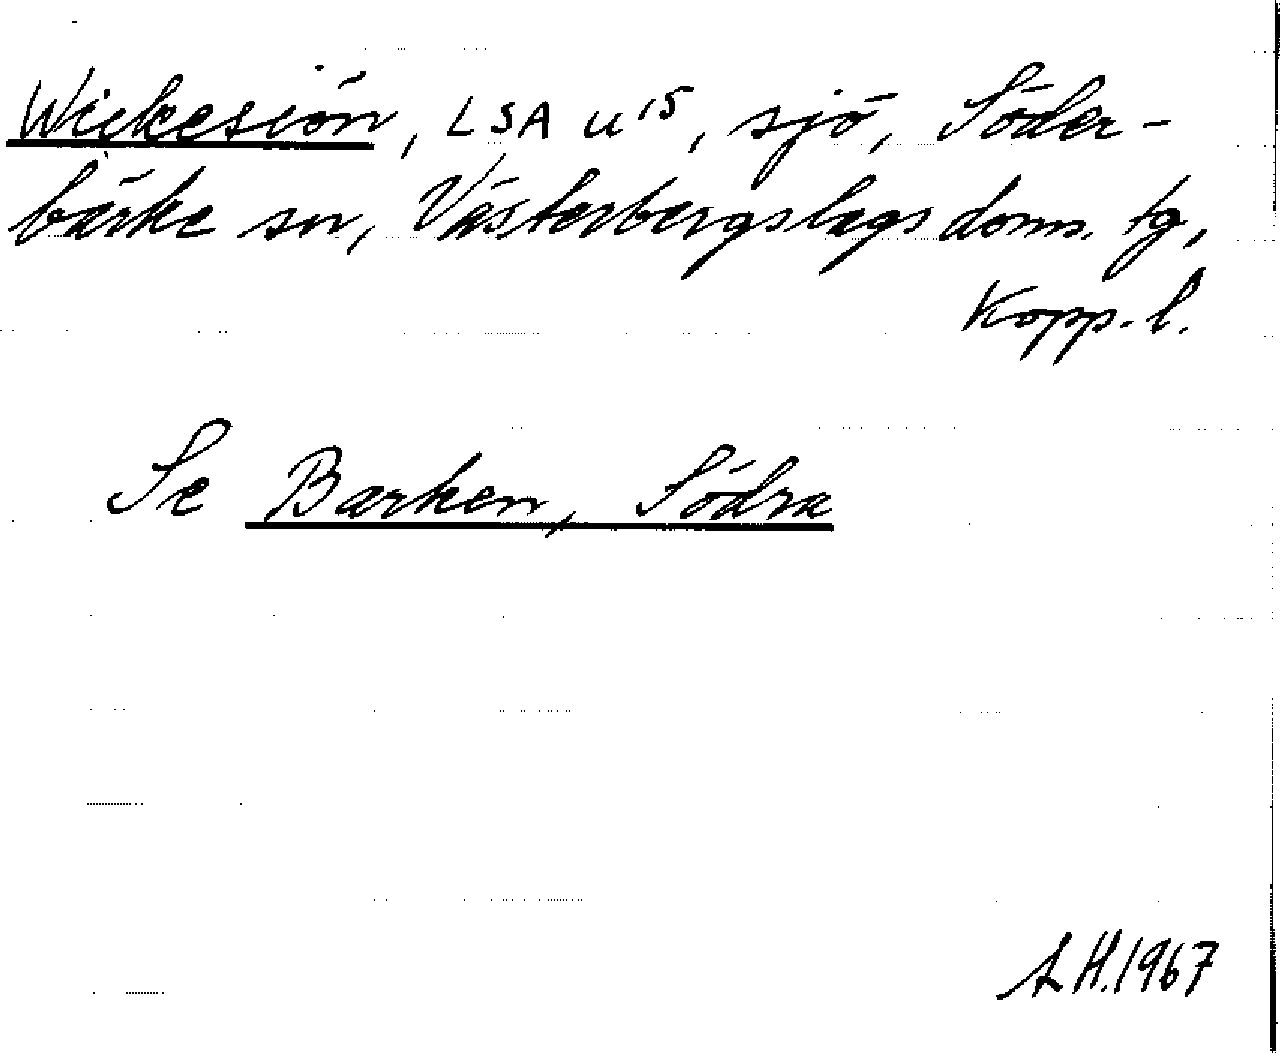 Wickesiön, LSA u¹⁵, sjö, Söder-
bärke sn, Västerbergslags doms. tg,
Kopp. l.
Se Barken, Södra
L H. 1967